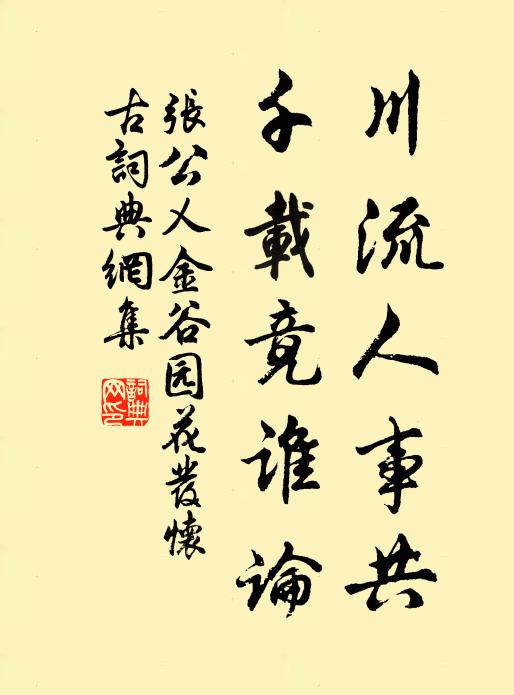 川流人事共
千載竟誰論
張公乂金谷园花發懷
古詞典網集
詞典
网印